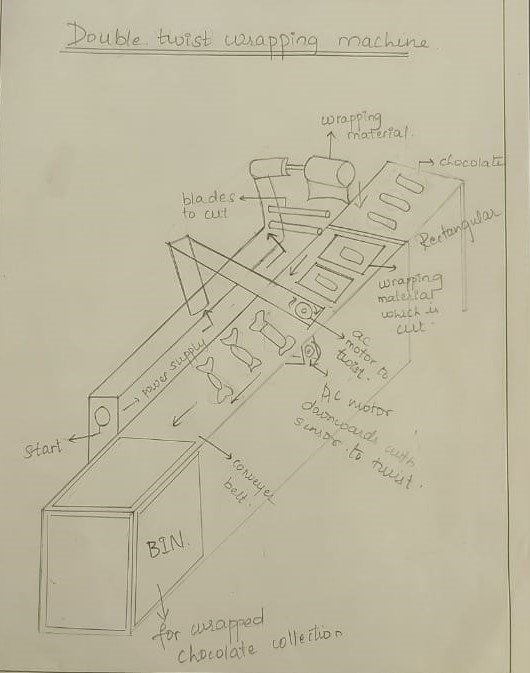 Double twist wrapping machine
wrapping
material
chocolate
blades
to cut
Rectangular
wrapping
material
which is
cut
ac
motor to
twist.
power supply
DC motor
downwards with
sensor to twist.
Start
conveyer
belt.
BIN.
for wrapped
chocolate collection